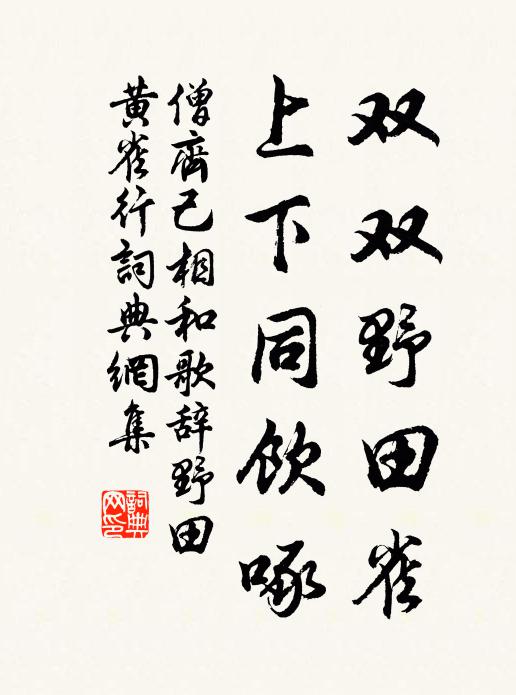 双双野田雀
上下同饮啄
僧齊己相和歌辞野田
黄雀行詞典網集
詞典
网印